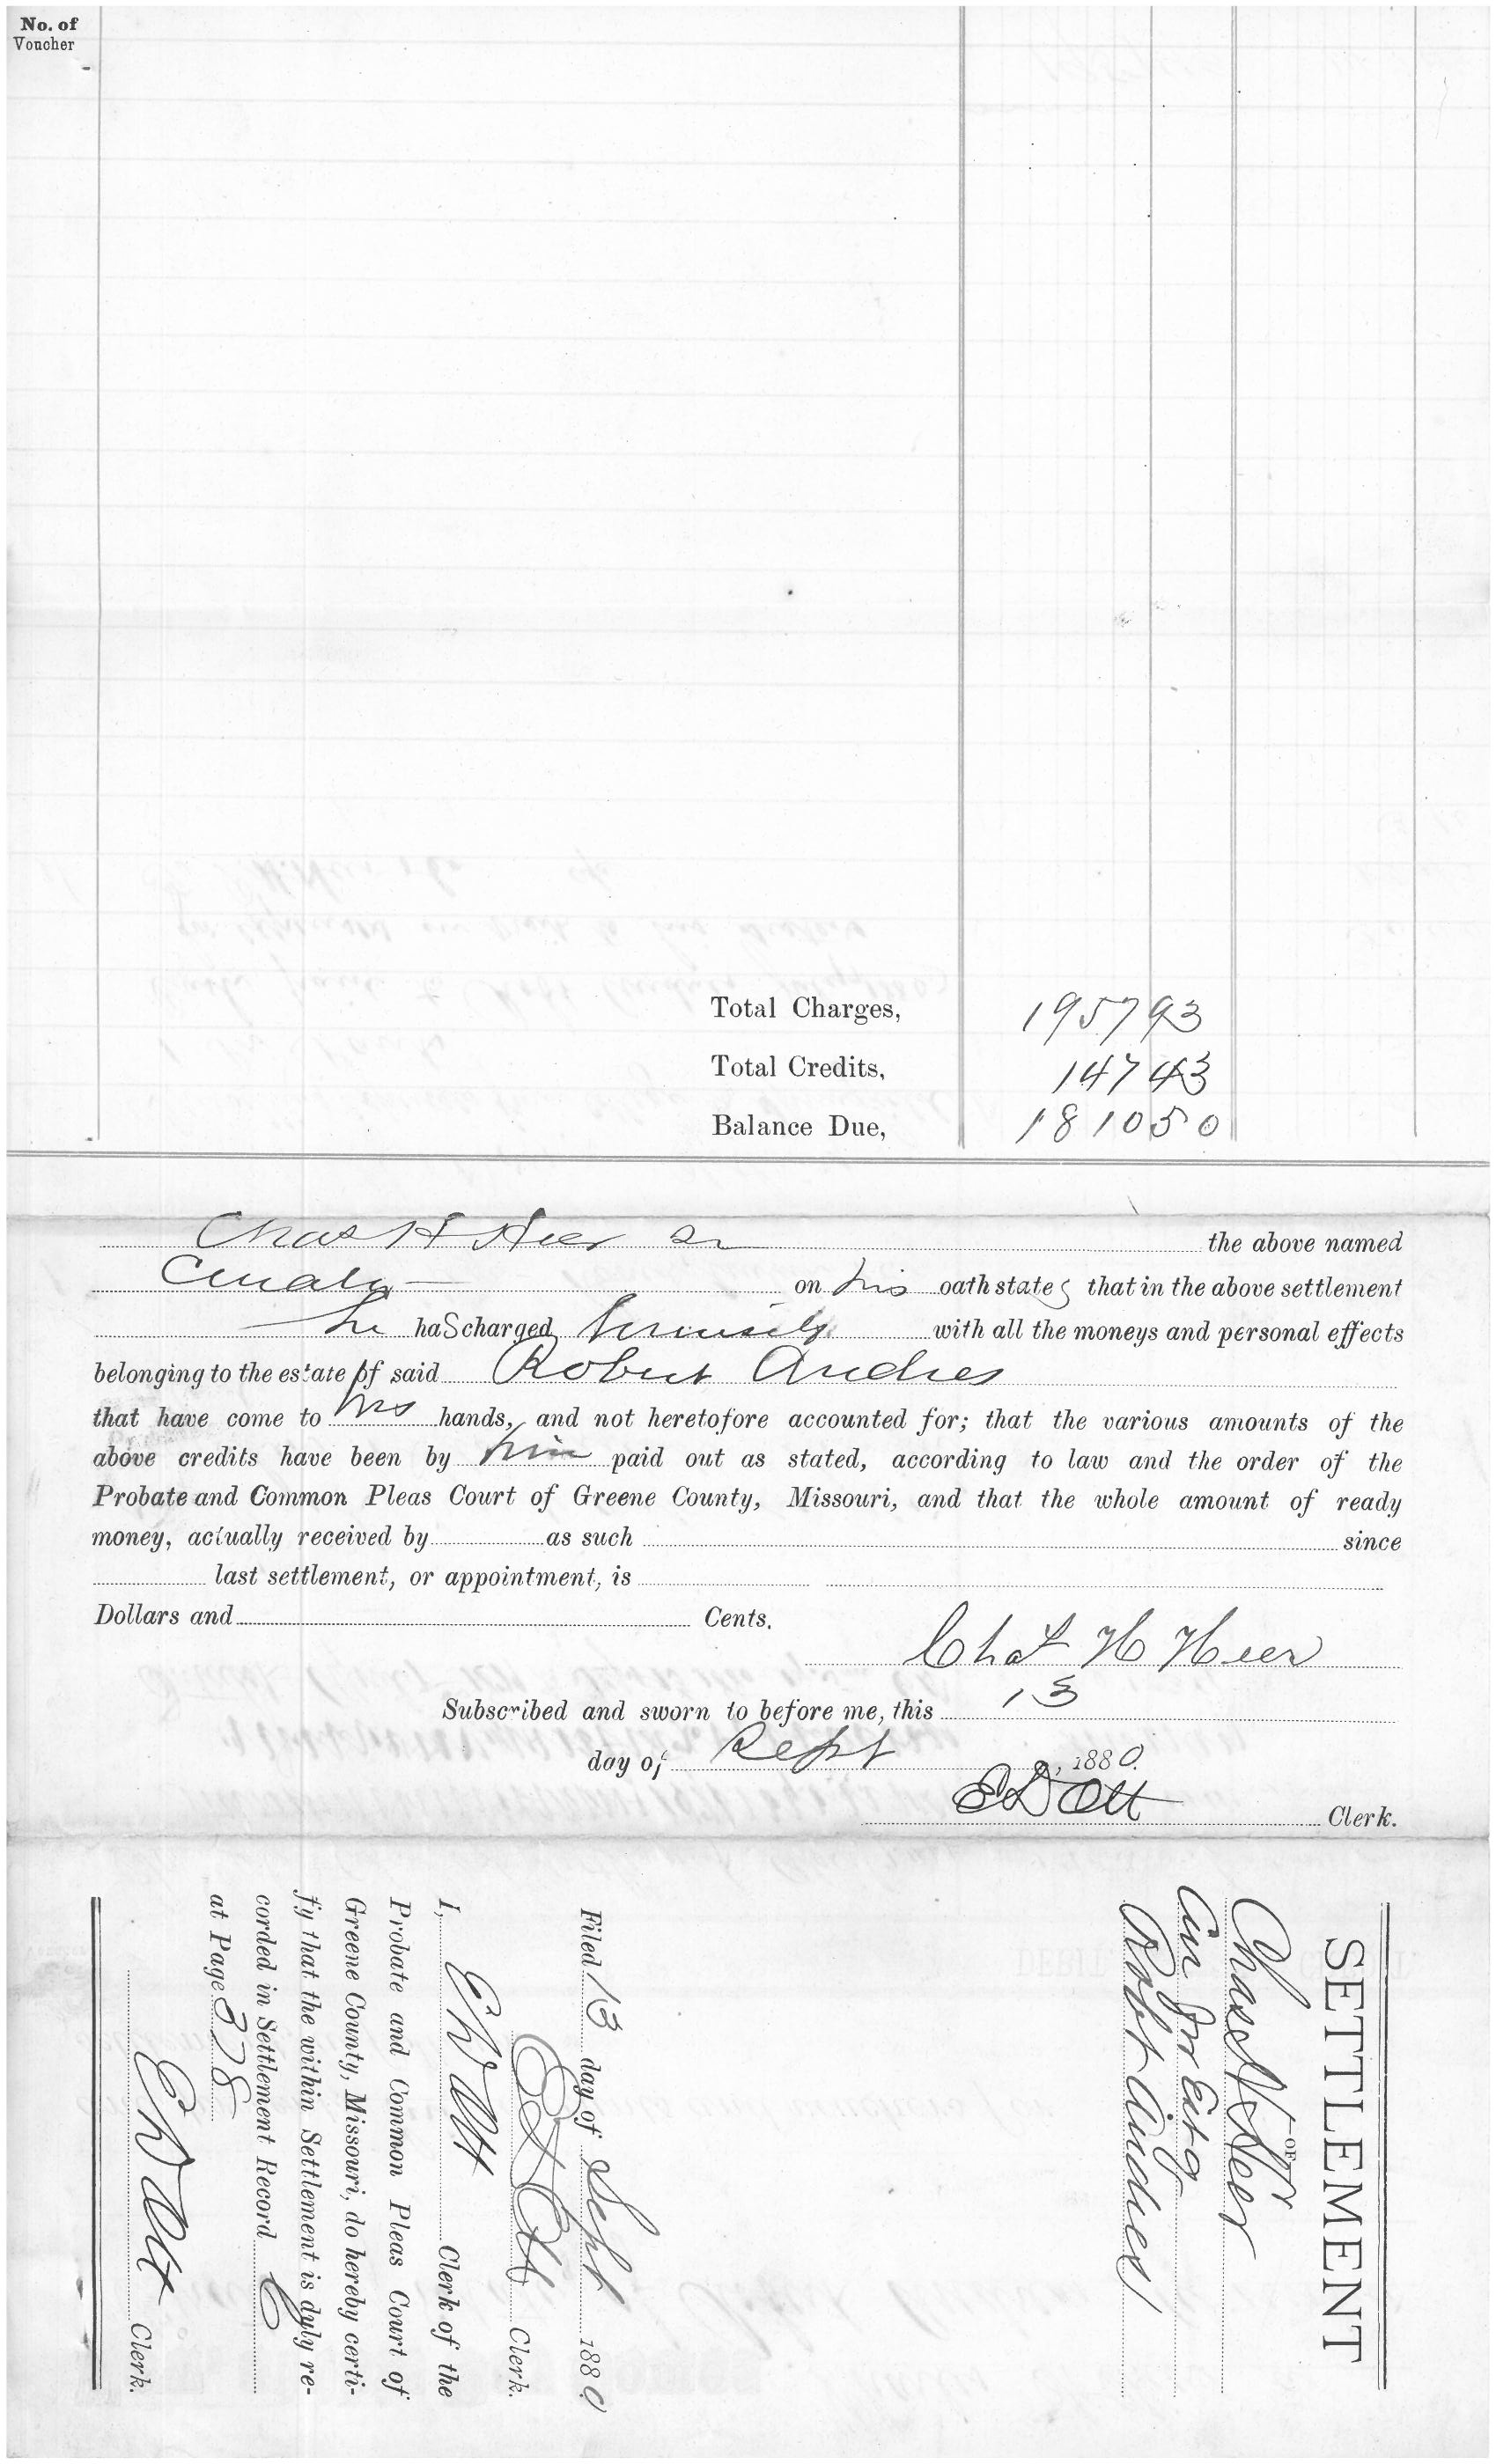 No. of
Voucher
Total Charges, 1957 93
Total Credits, 147 43
Balance Due, 1810 50
Chas H Heer Sr the above named
Curator on his oath states that in the above settlement
he haS charged himself with all the moneys and personal effects
belonging to the estate of said Robert Andres
that have come to his hands, and not heretofore accounted for; that the various amounts of the
above credits have been by him paid out as stated, according to law and the order of the
Probate and Common Pleas Court of Greene County, Missouri, and that the whole amount of ready
money, actually received by as such since
last settlement, or appointment, is
Dollars and Cents.
Chas H Heer
Subscribed and sworn to before me, this 13
day of Sept , 1880.
E D Ott Clerk.
SETTLEMENT
OF
Chas H Heer
Cur
Robt Andres
Filed 13 day of Sept 1880
E D Ott Clerk.
I, E D Ott Clerk of the
Probate and Common Pleas Court of
Greene County, Missouri, do hereby certi-
fy that the within Settlement is duly re-
corded in Settlement Record C
at Page 378
E D Ott Clerk.